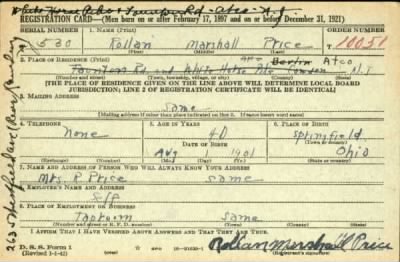 White Horse Pike & Taunton Rd - Atco - N.J.
REGISTRATION CARD—(Men born on or after February 17, 1897 and on or before December 31, 1921)
SERIAL NUMBER 1. NAME (Print) ORDER NUMBER
580 Rollan Marshall Price T10051
(First) (Middle) (Last)
2. PLACE OF RESIDENCE (Print)
Berlin Atco
Taunton Rd and White Horse Pike Camden N.J.
(Number and street) (Town, township, village, or city) (County) (State)
[THE PLACE OF RESIDENCE GIVEN ON THE LINE ABOVE WILL DETERMINE LOCAL BOARD
JURISDICTION; LINE 2 OF REGISTRATION CERTIFICATE WILL BE IDENTICAL]
3. MAILING ADDRESS
Same
[Mailing address if other than place indicated on line 2. If same insert word same]
4. TELEPHONE 5. AGE IN YEARS 6. PLACE OF BIRTH
None 40 Springfield
DATE OF BIRTH (Town or county)
Aug 1 1901 Ohio
(Exchange) (Number) (Mo.) (Day) (Yr.) (State or country)
7. NAME AND ADDRESS OF PERSON WHO WILL ALWAYS KNOW YOUR ADDRESS
Mrs. R. Price same
8. EMPLOYER'S NAME AND ADDRESS
Self
9. PLACE OF EMPLOYMENT OR BUSINESS
Taproom same
(Number and street or R. F. D. number) (Town) (County) (State)
I AFFIRM THAT I HAVE VERIFIED ABOVE ANSWERS AND THAT THEY ARE TRUE.
D. S. S. Form 1
(Revised 1-1-42)
Rollan Marshall Price
(Registrant's signature)